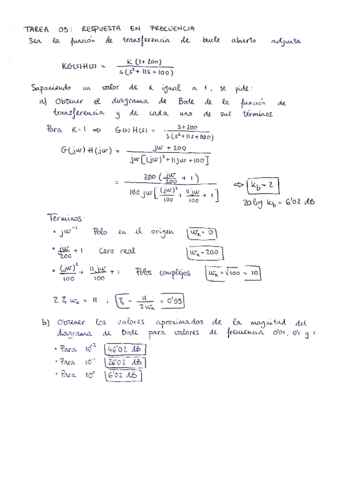 TAREA 05: RESPUESTA EN FRECUENCIA
Sea la función de transferencia de bucle abierto adjunta
KG(s)H(s) = K (s+200) / s(s²+11s+100)
Suponiendo un valor de K igual a 1, se pide:
a) Obtener el diagrama de Bode de la función de
transferencia y de cada uno de sus términos
Para K=1 ⇒ G(s)H(s) = s+200 / s(s²+11s+100)
G(jω)H(jω) = jω + 200 / jω[(jω)²+11jω+100]
= 200 (jω/200 + 1) / 100jω[(jω)²/100 + 11jω/100 + 1] ⇒ Kb = 2
20 log Kb = 6'02 dB
Términos:
• jω⁻¹ Polo en el origen ωn = 0
• jω/200 + 1 Cero real ωn = 200
• (jω)²/100 + 11jω/100 + 1 Polos complejos ωn = √100 = 10
2 ξ ωn = 11 ; ξ = 11/2ωn = 0'55
b) Obtener los valores aproximados de la magnitud del
diagrama de bode para valores de frecuencia 0'01, 0'1 y 1
• Para 10⁻² 46'02 dB
• Para 10⁻¹ 26'02 dB
• Para 10⁰ 6'02 dB